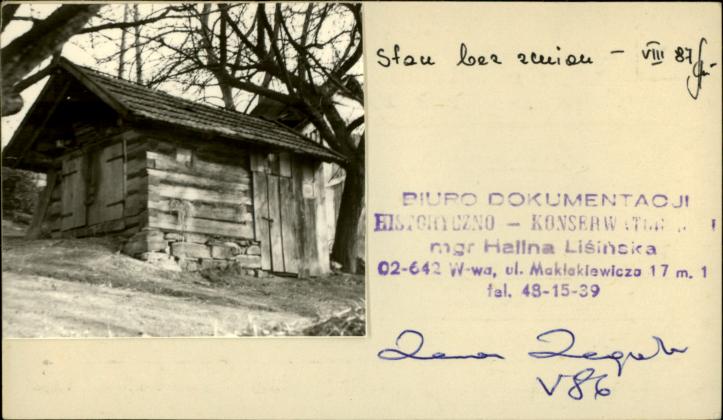 Stan bez zmian – VIII 87
BIURO DOKUMENTACJI
HISTORYCZNO – KONSERWAT
mgr Halina Lisińska
02-642 W-wa, ul. Makłakiewicza 17 m. 1
tel. 48-15-39
V 86